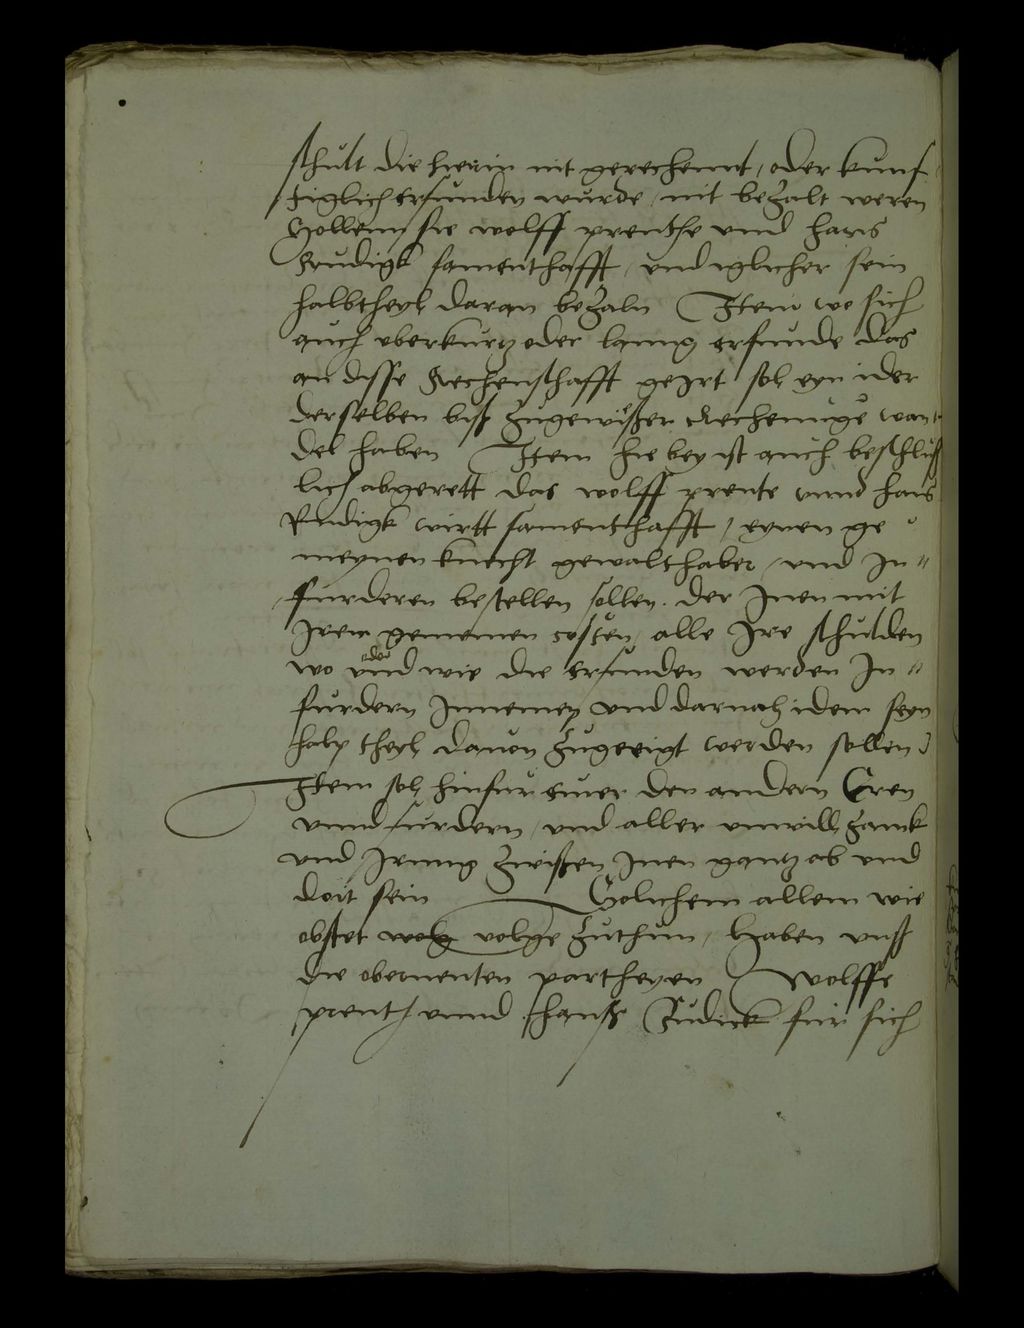 schult die hierin nit gerechent, oder kunf
tiglich erfunden wurde, nit bezalt weren
Sollenn sie wolff prenthe und hans
Prudigk samenthafft, und iglicher sein
halbtheyl daran bezaln Item wo sich
auch uberkurtz oder lanng erfunde das
an disse Rechenschafft geirt sol eyn ider
derselben biß zugewisser Rechenunge wan
del haben Item hie bey ist auch beschluß
lich abgerett das wolff prente unnd hans
Rudigk wirtt samenthafft, eynen ge
meynen knecht gewalthaber, und In"
furderen bestellen sollen. der Inen mit
Iren gemeinen costen, alle Ire schulden
wo oder und wie die erfunden werden In"
furdern Innemen und darnach idem seyn
halp theyl davon zugeeigt werden sollen
Item sol hinfur einer den andern Eren
unnd furdern, und aller unwill zanck
und Irrung zwischen Inen gantz ab und
doit sein Solichem allem wie
obstet volge zuthun, Haben unß
die obernenten partheyen Wolffe
prenth unnd hanß Rudick fur sich